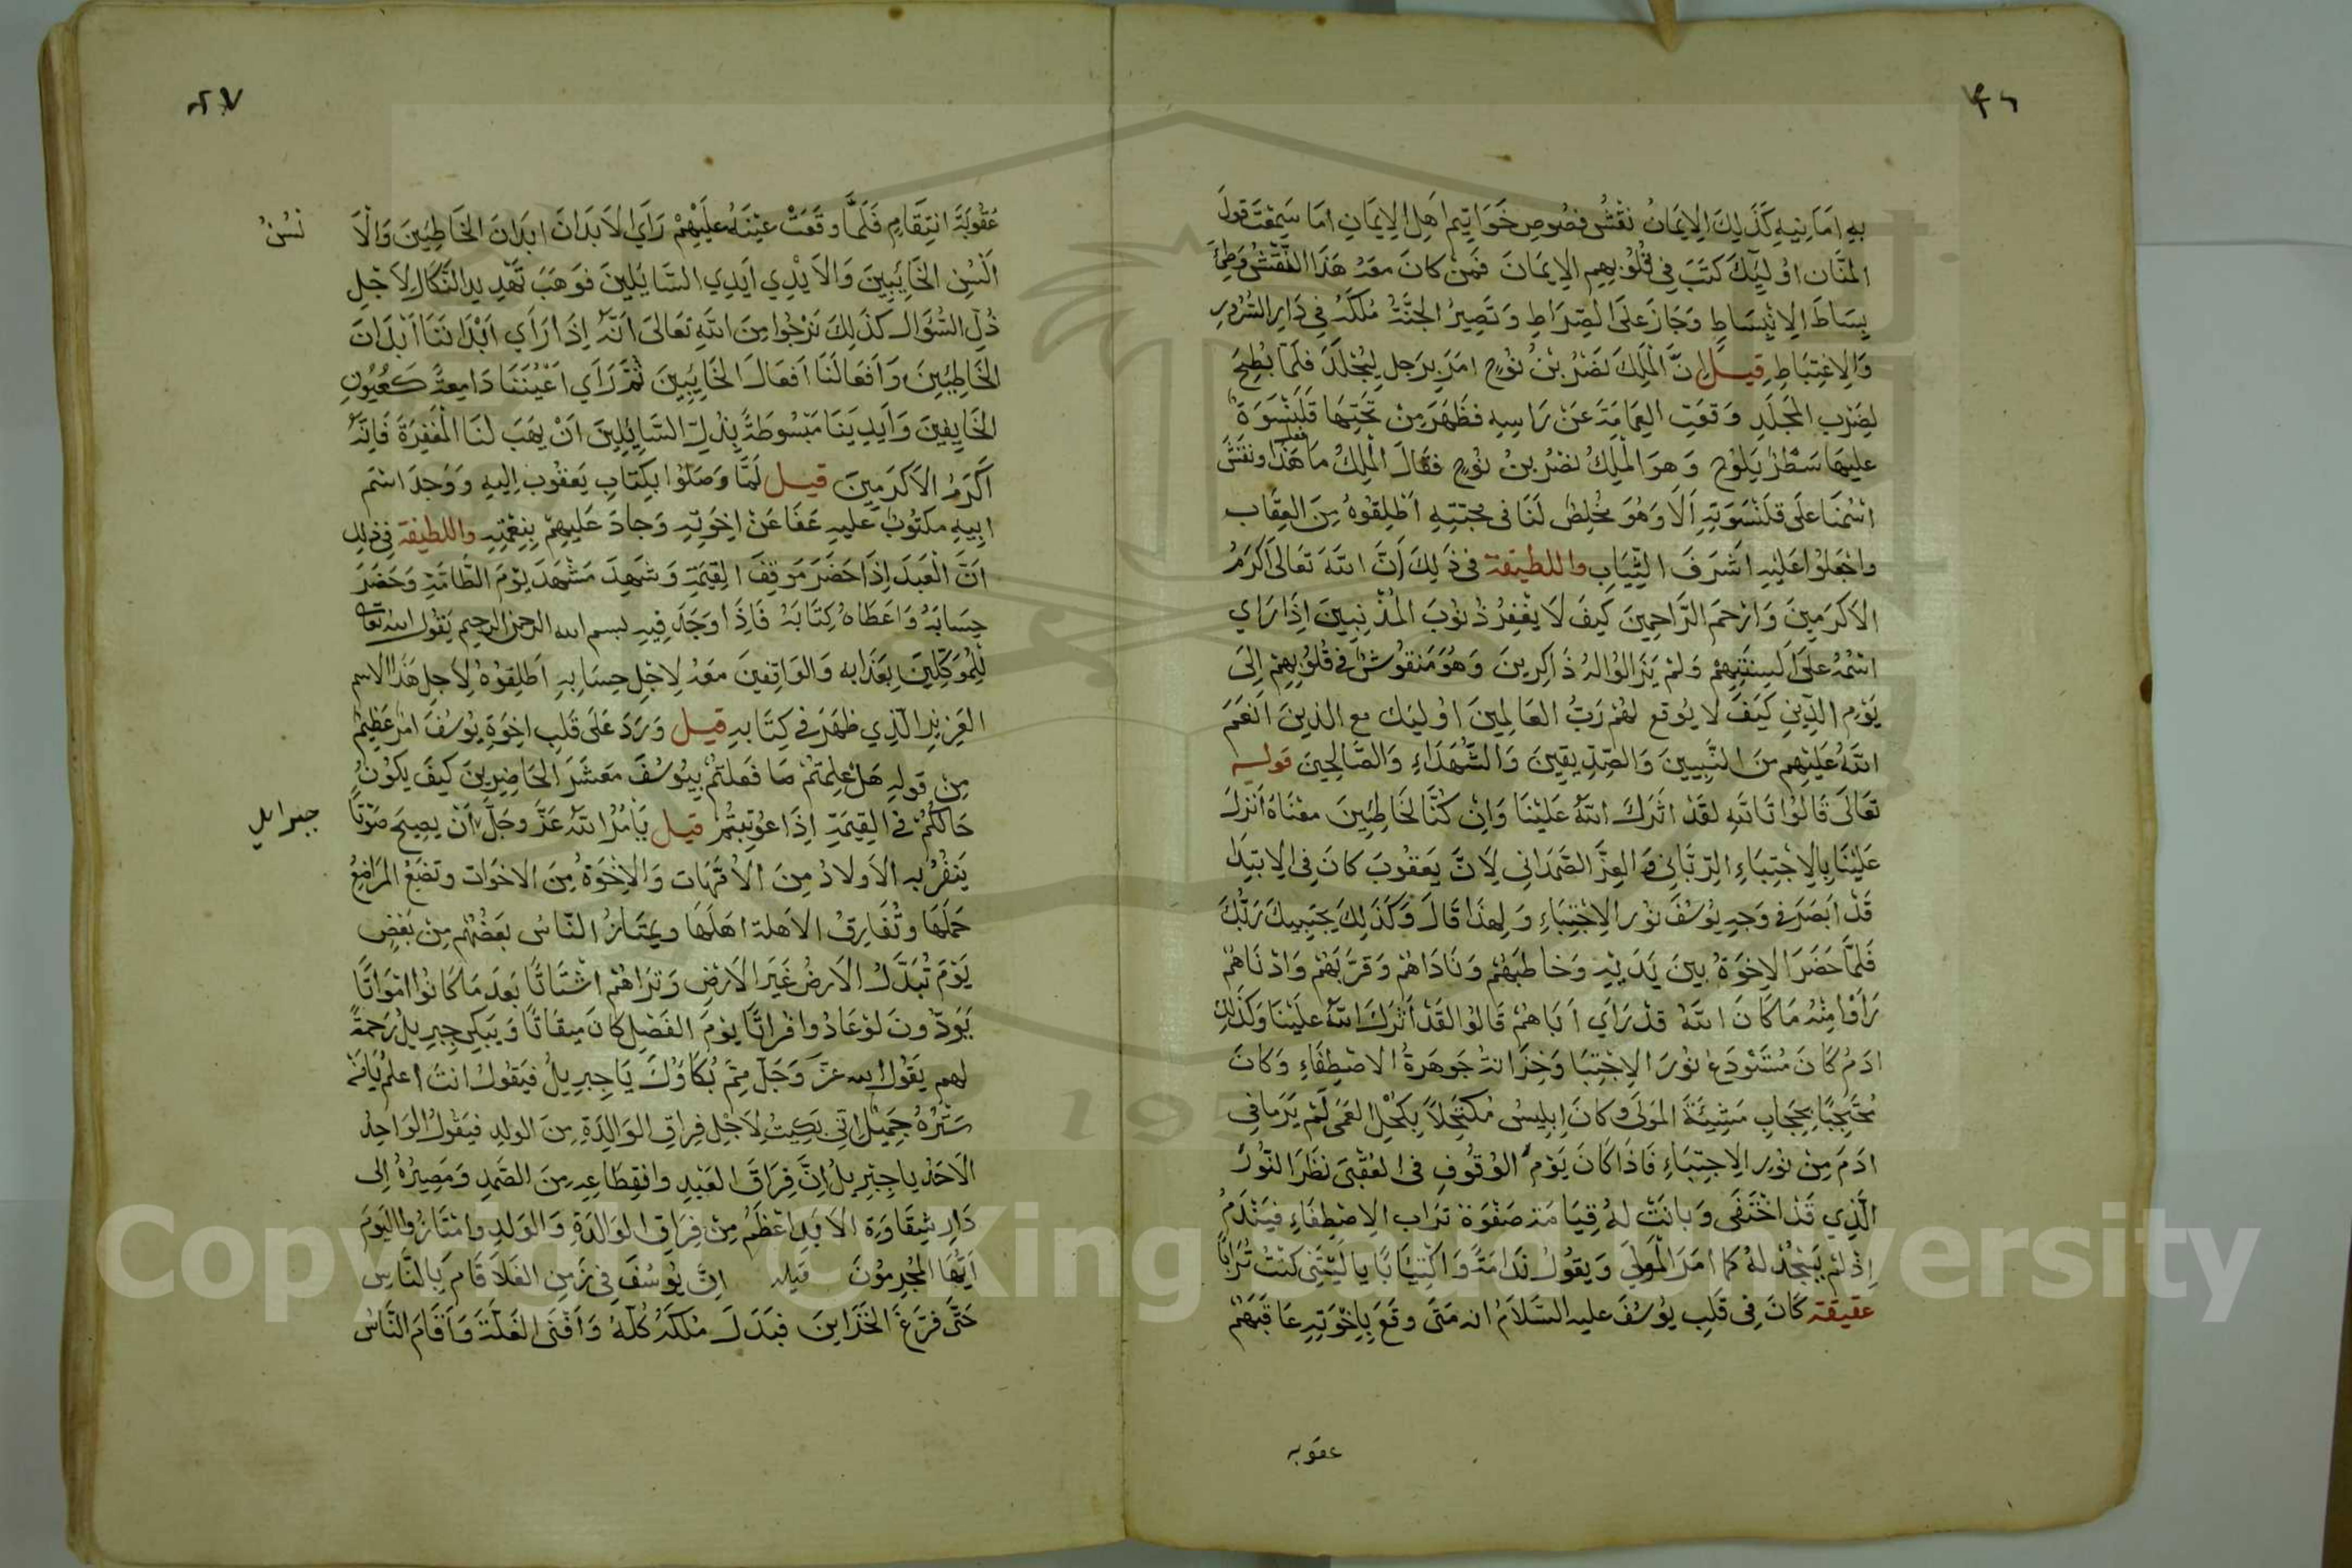 ٤٦
به امانيه كذلك الايمان نقش فصوص خواتيم اهل الايمان اما سمعت قول
المنان اوليك كتب في قلوبهم الايمان فمن كان معه هذا النقش وطئ
بساط الانبساط وجاز على الصراط وتصير الجنة ملكه في دار السرور
والاغتباط قيل ان الملك نضر بن نوح امر برجل ليجلد فلما بطح
لضرب المجلد وقعت العمامة عن راسه فظهر من تحتها قلنسوة
عليها سطر يلوح وهو الملك نضر بن نوح فقال الملك ما هذا ونقش
اسمنا على قلنسوته الا وهو مخلص لنا في محبته اطلقوه من العقاب
واجعلوا عليه اشرف الثياب واللطيفة في ذلك ان الله تعالى اكرم
الاكرمين وارحم الراحمين كيف لا يغفر ذنوب المذنبين اذا راي
اسمه على السنتهم ولم يزالوا له ذاكرين وهو منقوش في قلوبهم الى
يوم الدين كيف لا يوقع لهم رب العالمين اوليك مع الذين انعم
الله عليهم من النبيين والصديقين والشهداء والصالحين قوله
تعالى قالوا تالله لقد اثرك الله علينا وان كنا لخاطئين معناه انزل
علينا بالاجتباء الرباني والعز الصمداني لان يعقوب كان في الابتدا
قد ابصر في وجه يوسف نور الاجتباء ولهذا قال وكذلك يجتبيك ربك
فلما حضر الاخوة بين يديه وخاطبهم وناداهم وقربهم وادناهم
راوا منه ما كان الله قد راي اباهم قالوا لقد اثرك الله علينا وكذلك
ادم كان مستودع نور الاجتبا وخزانة جوهرة الاصطفاء وكان
محتجبا بحجاب مشيئة المولى وكان ابليس مكتحلا بكحل العمى لم ير ما في
ادم من نور الاجتباء فاذا كان يوم الوقوف في العقبى نظر النور
الذي قد اختفى وبانت له قيامة صفوة تراب الاصطفاء فيندم
اذ لم يسجد له كما امر المولى ويقول ندامة واكتيابا يا ليتني كنت ترابا
عقيقة كان في قلب يوسف عليه السلام انه متى وقع باخوته عاقبهم
عقوبه
٤٧
عقوبة انتقام فلما وقعت عينه عليهم راي الابدان ابدان الخاطيين والا
لسن
السن الخايبين والايدي ايدي السايلين فوهب تهديد النكال لاجل
ذل السوال كذلك نرجوا من الله تعالى انه اذا راي ابداننا ابدان
الخاطيين وافعالنا افعال الخايبين ثم راي اعيننا دامعة كعيون
الخايفين وايدينا مبسوطة بذل السايلين ان يهب لنا المغفرة فانه
اكرم الاكرمين قيل لما وصلوا بكتاب يعقوب اليه ووجد اسم
ابيه مكتوب عليه عفا عن اخوته وجاد عليهم بنعمته واللطيفة في ذلك
ان العبد اذا حضر موقف القيمة وشهد مشهد يوم الطامة وحضر
حسابه واعطاه كتابه فاذا وجد فيه بسم الله الرحمن الرحيم يقول الله تعالى
للموكلين بعذابه والواقفين معه لاجل حسابه اطلقوه لاجل هذا الاسم
العزيز الذي ظهر في كتابه قيل ورد على قلب اخوة يوسف امر عظيم
من قوله هل علمتم ما فعلتم بيوسف معشر الحاضرين كيف يكون
حالكم في القيمة اذا عوتبتم قيل يامر الله عز وجل ان يصيح صوتا
جبرايل
ينفر به الاولاد من الامهات والاخوة من الاخوات وتضع المراضع
حملها وتفارق الاهلة اهلها ويمتاز الناس بعضهم من بعض
يوم تبدل الارض غير الارض وتراهم اشتاتا بعد ما كانوا امواتا
يودون لو عادوا فراتا يوم الفصل كان ميقاتا ويبكي جبريل رحمة
لهم يقول الله عز وجل مم بكاؤك يا جبريل فيقول انت اعلم يا من
ستره جميل اني بكيت لاجل فراق الوالدة من الولد فيقول الواحد
الاحد يا جبريل ان فراق العبد وانقطاعه من الصمد ومصيره الى
دار شقاوة الابد اعظم من فراق الوالدة والولد وامتازوا اليوم
ايها المجرمون قيل ان يوسف في زمن الغلا قام بالناس
حتى فرغ الخزاين فبذل ملكه كله وافنى الغلة واقام الناس
Copyright © King Saud University